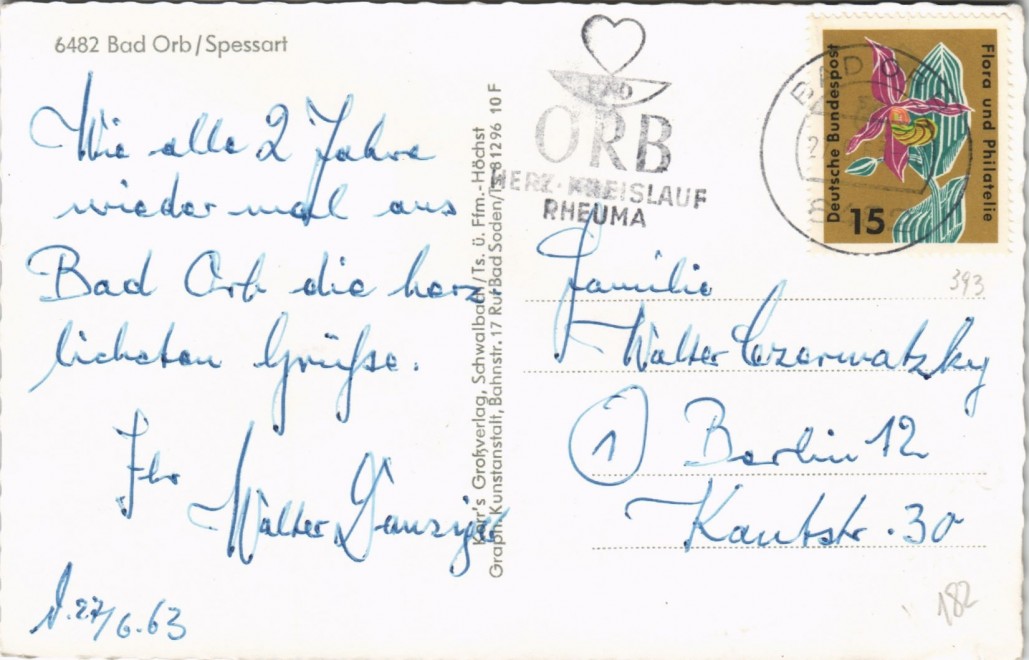 6482 Bad Orb/Spessart
Wie alle 2 Jahre
wieder mal aus
Bad Orb die herz-
lichsten Grüße.
Ihr
Walter Danziger
27/6.63
Karr's Großverlag, Schwalbach/Ts. ü. Ffm.-Höchst
Graph. Kunstanstalt, Bahnstr. 17 Ruf Bad Soden/Ts. 81296 10 F
BAD
ORB
HERZ-KREISLAUF
RHEUMA
BAD O
Deutsche Bundespost
Flora und Philatelie
15
Familie
Walter Czerwatzky
1 Berlin 12
Kantstr. 30
393
182